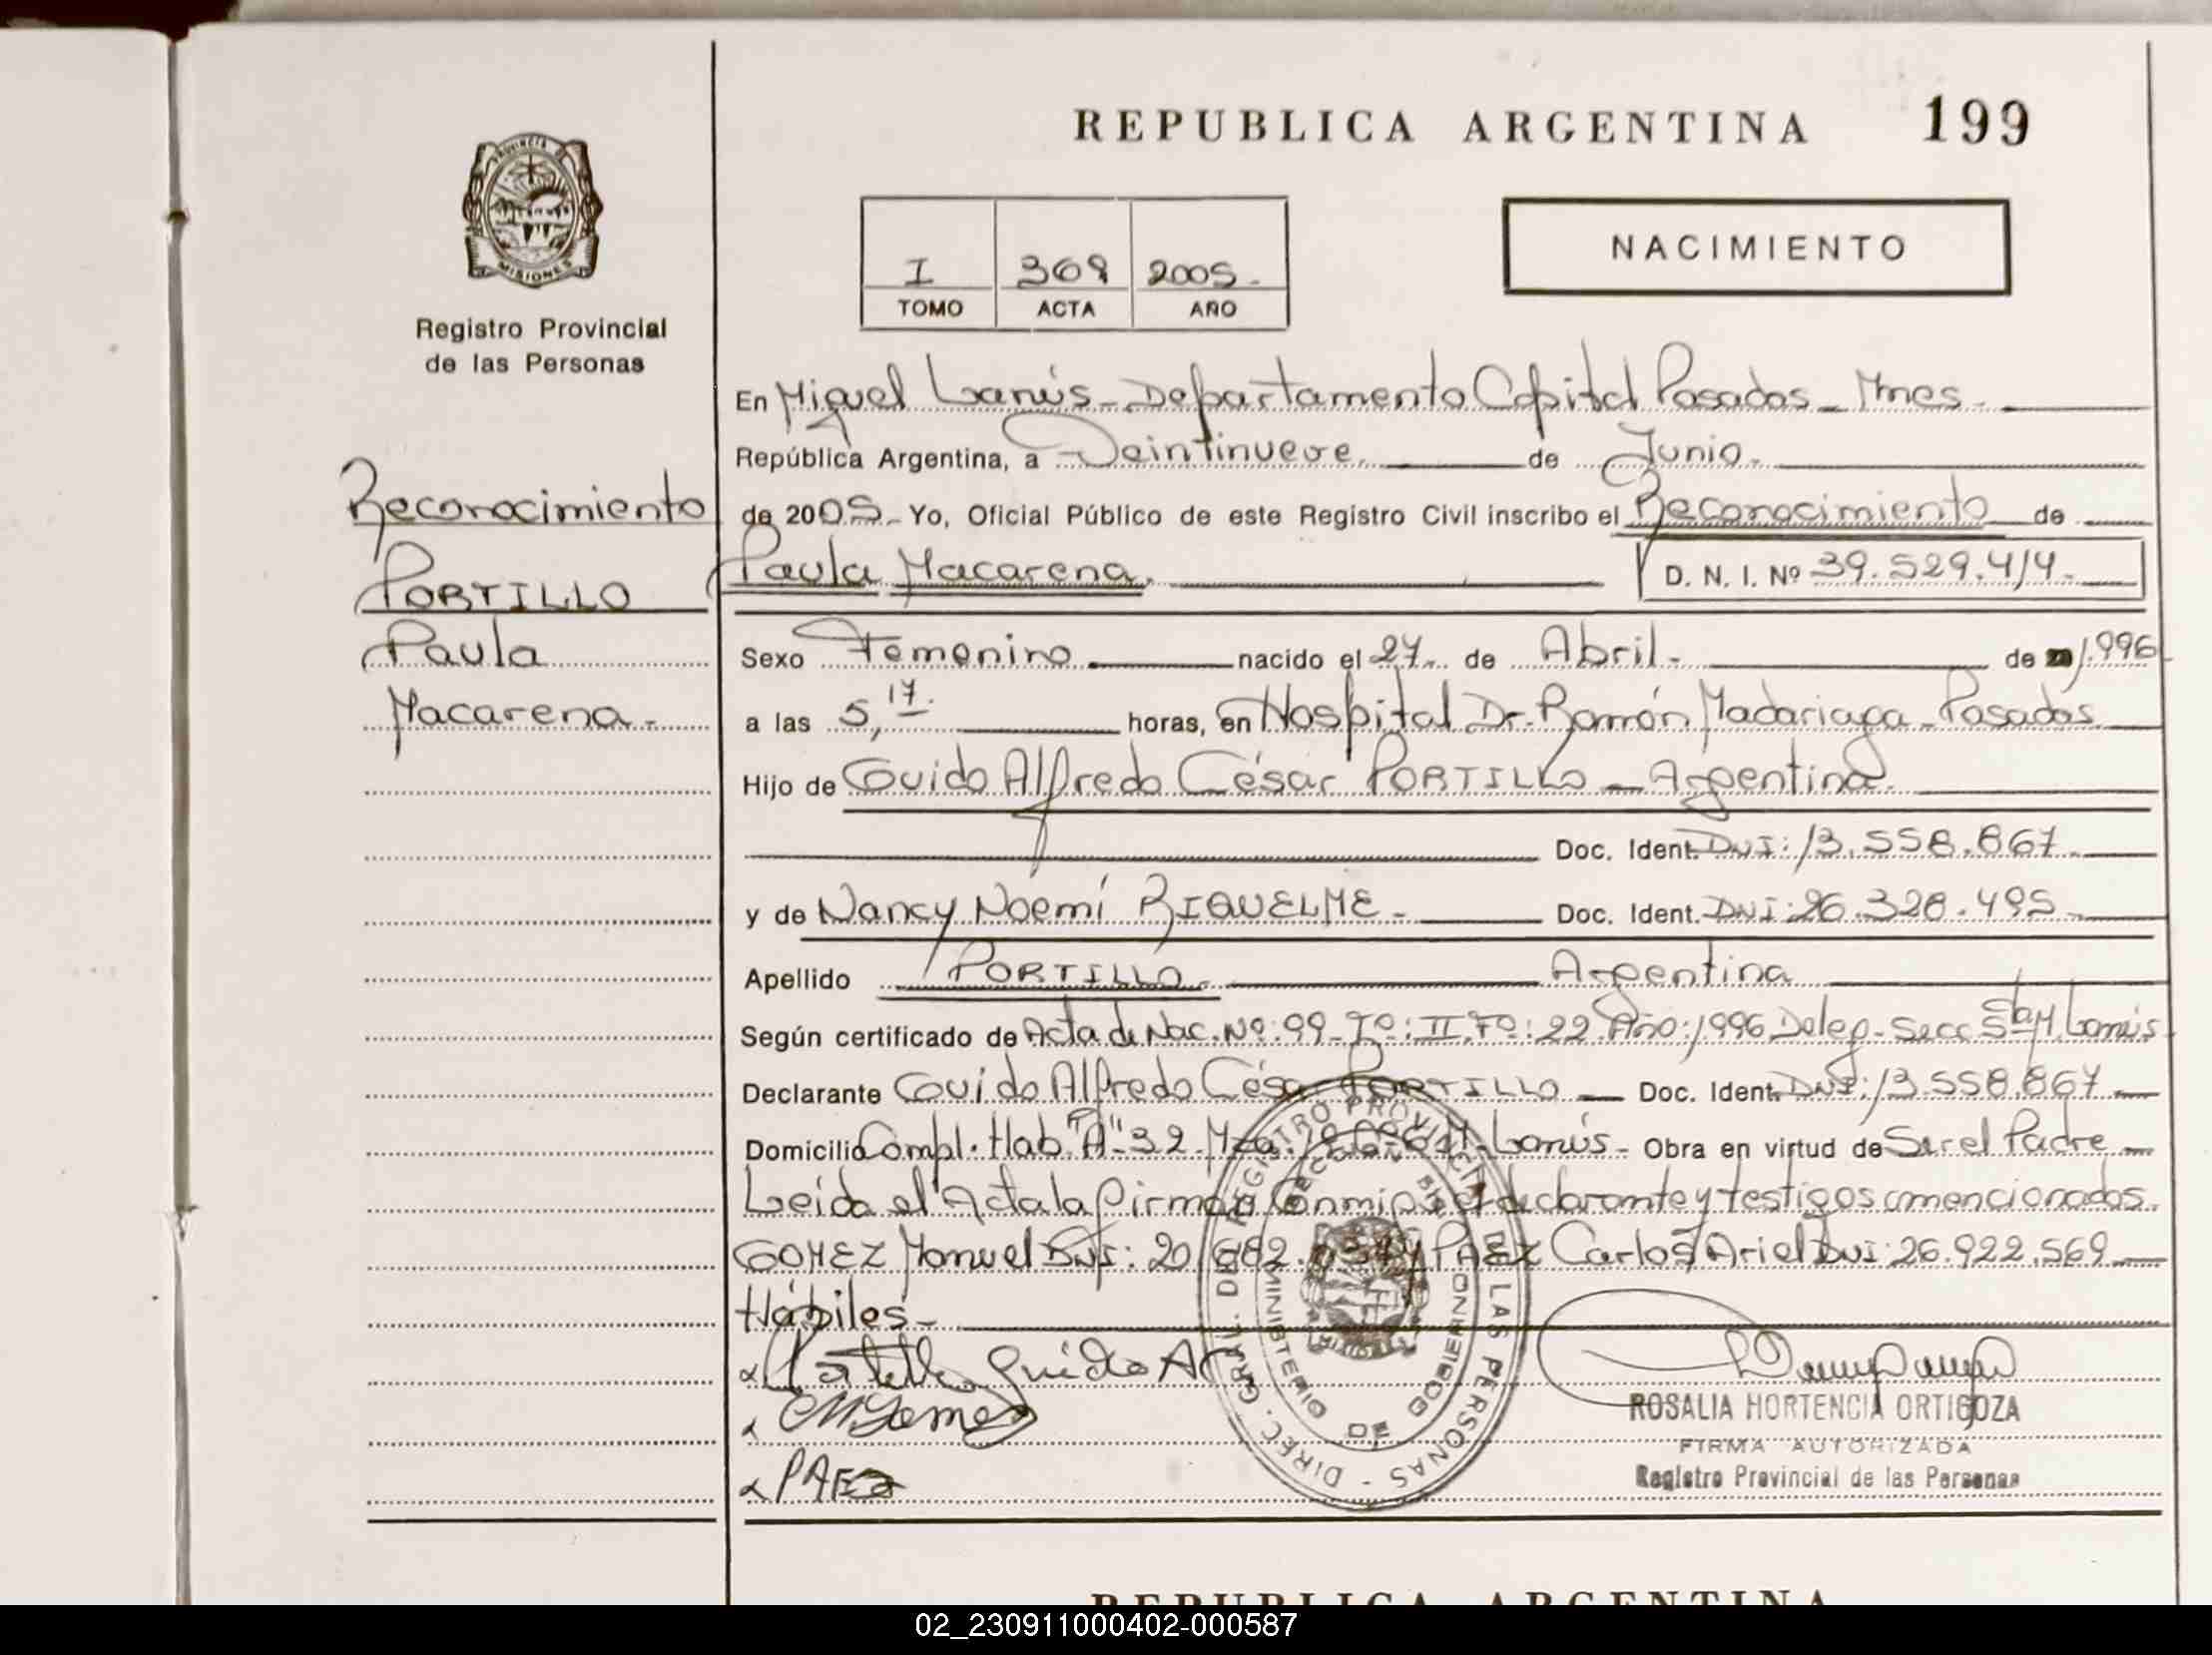 REPUBLICA ARGENTINA 199
PROVINCIA DE
MISIONES
Registro Provincial
de las Personas
I 369 2005.-
TOMO ACTA AÑO
NACIMIENTO
En Miguel Lanús - Departamento Capital Posadas - Mnes -
República Argentina, a Veintinueve. de Junio.
Reconocimiento
PORTILLO
Paula
Macarena -
de 2005.- Yo, Oficial Público de este Registro Civil inscribo el Reconocimiento de
Paula Macarena. D. N. I. Nº 39.529.414.-
Sexo Femenino nacido el 27 de Abril - de 1.996 -
a las 5,17 horas, en Hospital Dr. Ramón Madariaga - Posadas
Hijo de Guido Alfredo César PORTILLO - Argentina.
Doc. Ident. DNI: 13.558.867.
y de Nancy Noemí RIQUELME - Doc. Ident. DNI: 26.328.495
Apellido PORTILLO. Argentina
Según certificado de Acta de Nac. Nº: 99 - Tº: II Fº: 22 Año: 1996 Deleg - Secc 5ta M. Lanús
Declarante Guido Alfredo César PORTILLO - Doc. Ident. DNI: 13.558.867
Domicilio Compl. Hab. "A" 32 - Mza. M. Lanús - Obra en virtud de Ser el Padre
Leida el Acta la firman Conmigo el declarante y testigos mencionados
GOMEZ Manuel DNI: 20.682. y PAEZ Carlos Ariel DNI: 26.922.569
Hábiles -
Portillo Guido A C
Gomez
PAEZ
DIREC. GRAL. DEL REGISTRO PROVINCIAL DE LAS PERSONAS -
MINISTERIO DE GOBIERNO
ROSALIA HORTENCIA ORTIGOZA
FIRMA AUTORIZADA
Registro Provincial de las Personas
REPUBLICA ARGENTINA
02_230911000402-000587